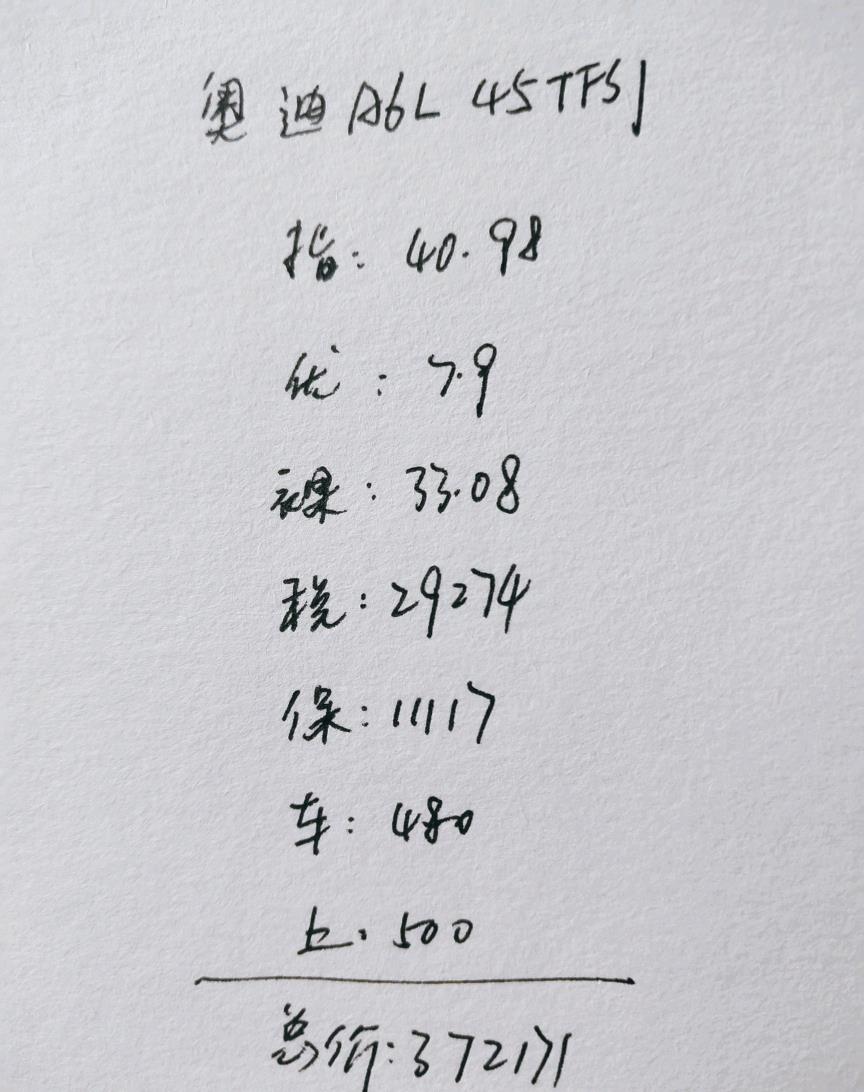 奥迪A6L 45TFSI
指：40.98
优：7.9
裸：33.08
税：29274
保：11117
车：480
上：500
总价：372171